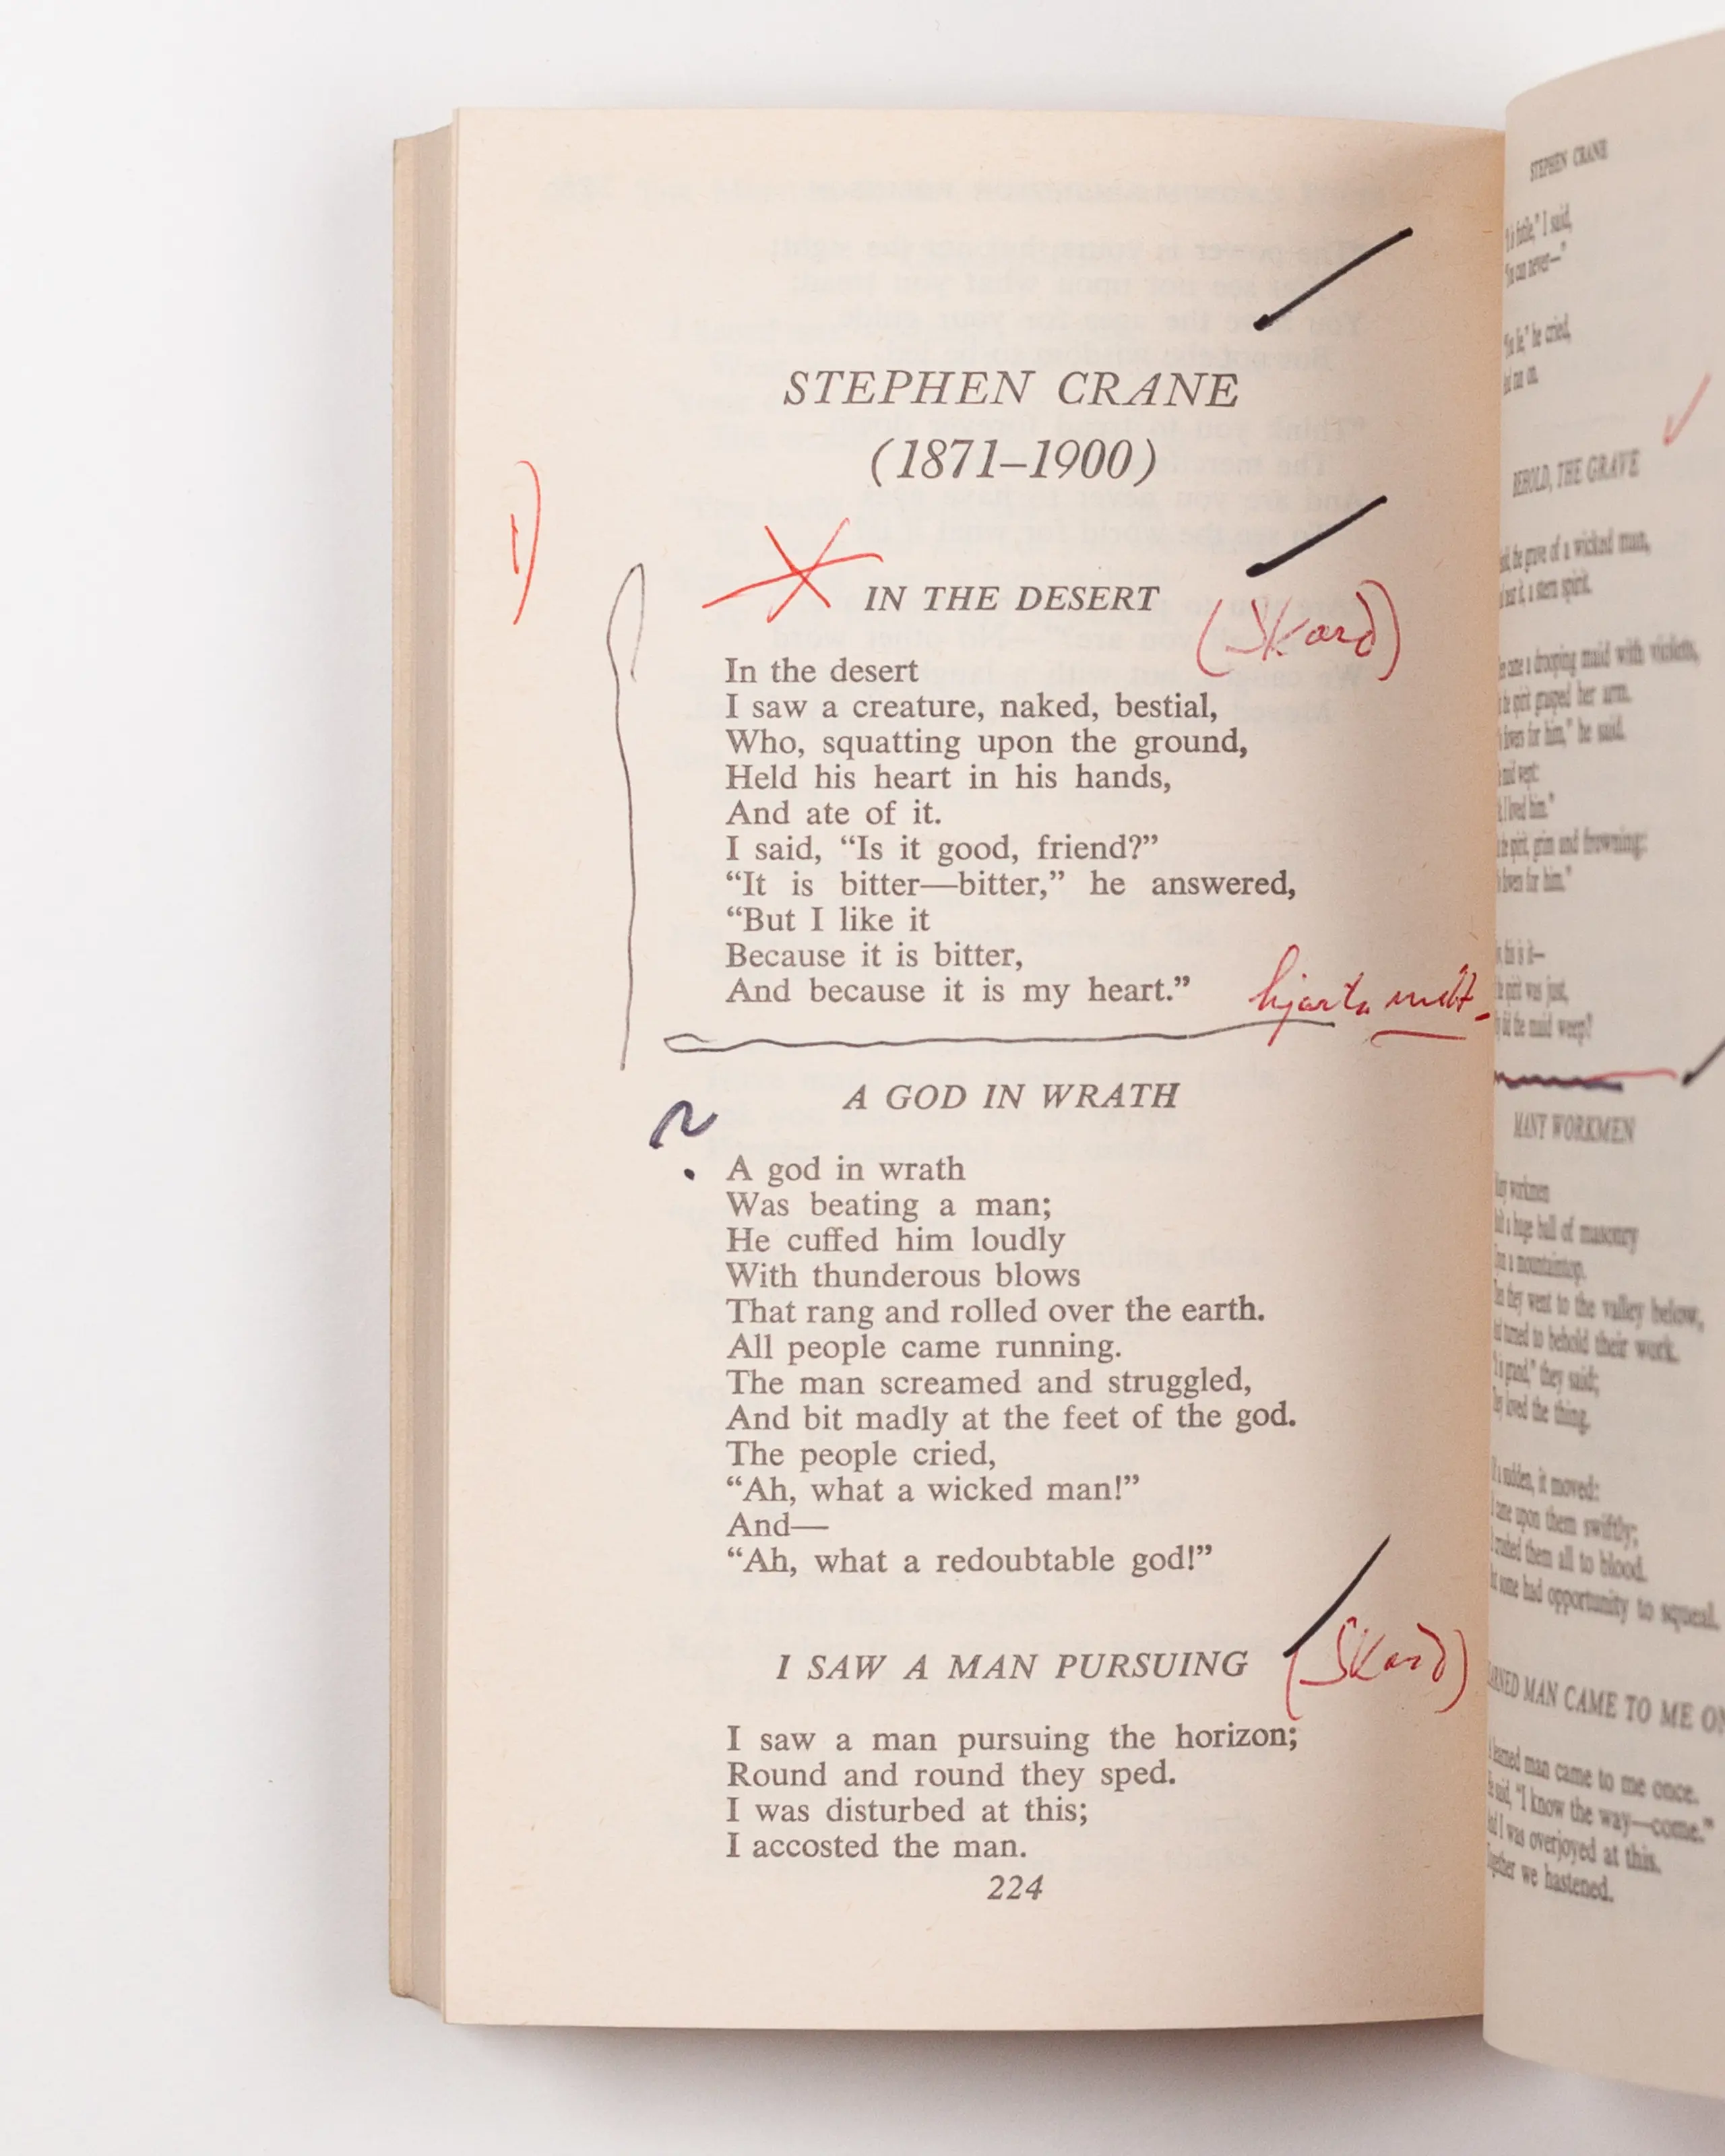 STEPHEN CRANE
(1871–1900)
1)
IN THE DESERT
(Skard)
In the desert
I saw a creature, naked, bestial,
Who, squatting upon the ground,
Held his heart in his hands,
And ate of it.
I said, “Is it good, friend?”
“It is bitter—bitter,” he answered,
“But I like it
Because it is bitter,
And because it is my heart.”
hjarta mitt.
A GOD IN WRATH
?
A god in wrath
Was beating a man;
He cuffed him loudly
With thunderous blows
That rang and rolled over the earth.
All people came running.
The man screamed and struggled,
And bit madly at the feet of the god.
The people cried,
“Ah, what a wicked man!”
And—
“Ah, what a redoubtable god!”
I SAW A MAN PURSUING
(Skard)
I saw a man pursuing the horizon;
Round and round they sped.
I was disturbed at this;
I accosted the man.
224
STEPHEN CRANE
futile,” I said,
can never—”
lie,” he cried,
ran on.
BEHOLD, THE GRAVE
the grave of a wicked man,
near it, a stern spirit.
came a drooping maid with violets,
the spirit grasped her arm.
flowers for him,” he said.
maid wept:
I loved him.”
the spirit, grim and frowning:
flowers for him.”
this is it—
spirit was just,
did the maid weep?
MANY WORKMEN
Many workmen
a huge ball of masonry
a mountaintop.
Then they went to the valley below,
turned to behold their work.
is grand,” they said;
They loved the thing.
a sudden, it moved:
came upon them swiftly;
crushed them all to blood.
some had opportunity to squeal.
MAN CAME TO ME
learned man came to me once.
He said, “I know the way—come.”
And I was overjoyed at this.
Together we hastened.